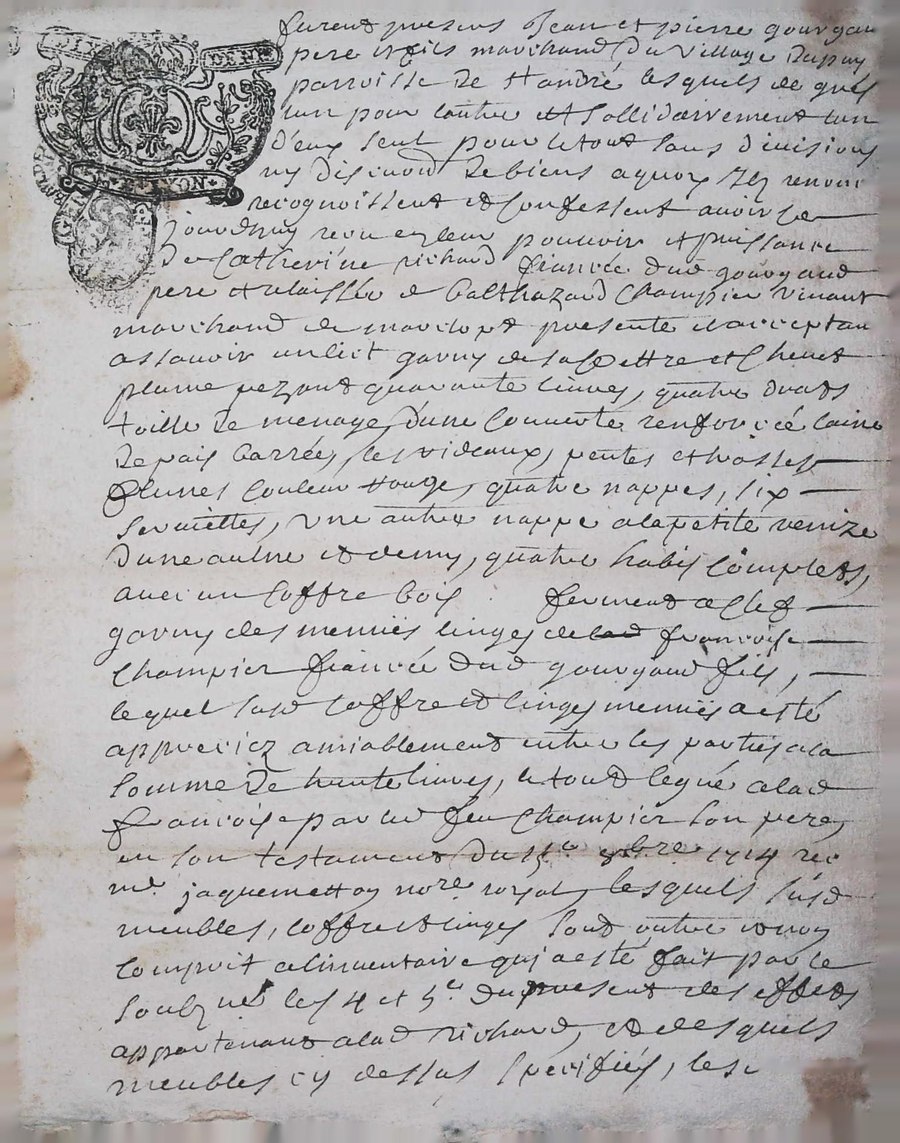 DIX DEN
GEN
furent presens Jean et pierre gourgau
pere et fils marchand du village Dupuy
parroisse De st andré lesquels de gres
lun pour lautre et sollidairrement lun
d'eux seul pour le tout sans divisions
ny discution De biens a quoy ilz renon
recognoissent et confessent avoir ce
jourdhuy receu en leur pouvoir et puissance
De Catherine richard fiancée dud gourgaud
pere et relaissée de Balthazard Champier vivant
marchand de presente et acceptan
assavoir un lict garny de sa Coettre et chevet
plume pezant quarante livres, quatre draps
toille De menage, d'une Couverte renforcée laine
De païs barrée, les rideaux, pentes et
Couleur rouge, quatre nappes, six
serviettes, une autre nappe a la petite venize
d'une aulne et demy, quatre habis Complets,
avec un Coffre bois fermant a clef
garny des menues linges de lad francoise
Champier fiancée dud gourgaud fils,
lequel susd Coffre et linges menues a esté
apprecier amiablement entre les parties a la
somme De livres, le tout legué a lad
francoise par led feu Champier son pere,
en son testament du 15e 1714 rec
me jaquemetton nore royal, lesquels susd
meubles, Coffre et linges sont outre
alimentaire qui a esté fait par le
soubzné les 4 et 5e du present des effets
appartenant a lad richard, et desquels
meubles cy dessus speciffiés, les